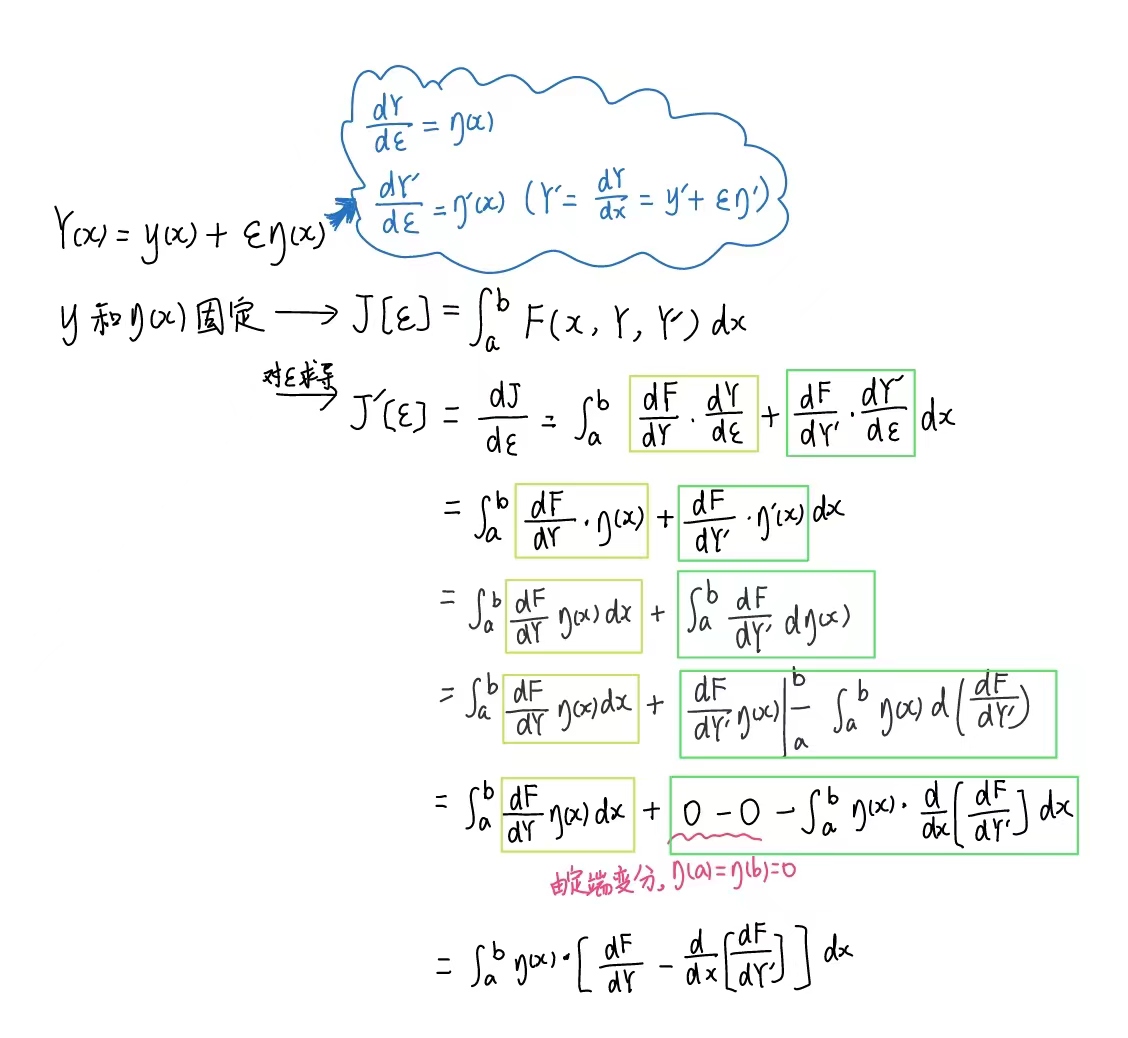 dY/dε = η(x)
dY′/dε = η′(x) (Y′ = dY/dx = y′ + εη′)
Y(x) = y(x) + εη(x)
y 和 η(x) 固定 ⟶ J[ε] = ∫_a^b F(x, Y, Y′) dx
对ε求导
⟶ J′[ε] = dJ/dε = ∫_a^b dF/dY · dY/dε + dF/dY′ · dY′/dε dx
= ∫_a^b dF/dY · η(x) + dF/dY′ · η′(x) dx
= ∫_a^b dF/dY η(x) dx + ∫_a^b dF/dY′ dη(x)
= ∫_a^b dF/dY η(x) dx + dF/dY′ η(x)|_a^b − ∫_a^b η(x) d(dF/dY′)
= ∫_a^b dF/dY η(x) dx + 0 − 0 − ∫_a^b η(x) · d/dx [dF/dY′] dx
由定端变分, η(a) = η(b) = 0
= ∫_a^b η(x) · [dF/dY − d/dx [dF/dY′]] dx